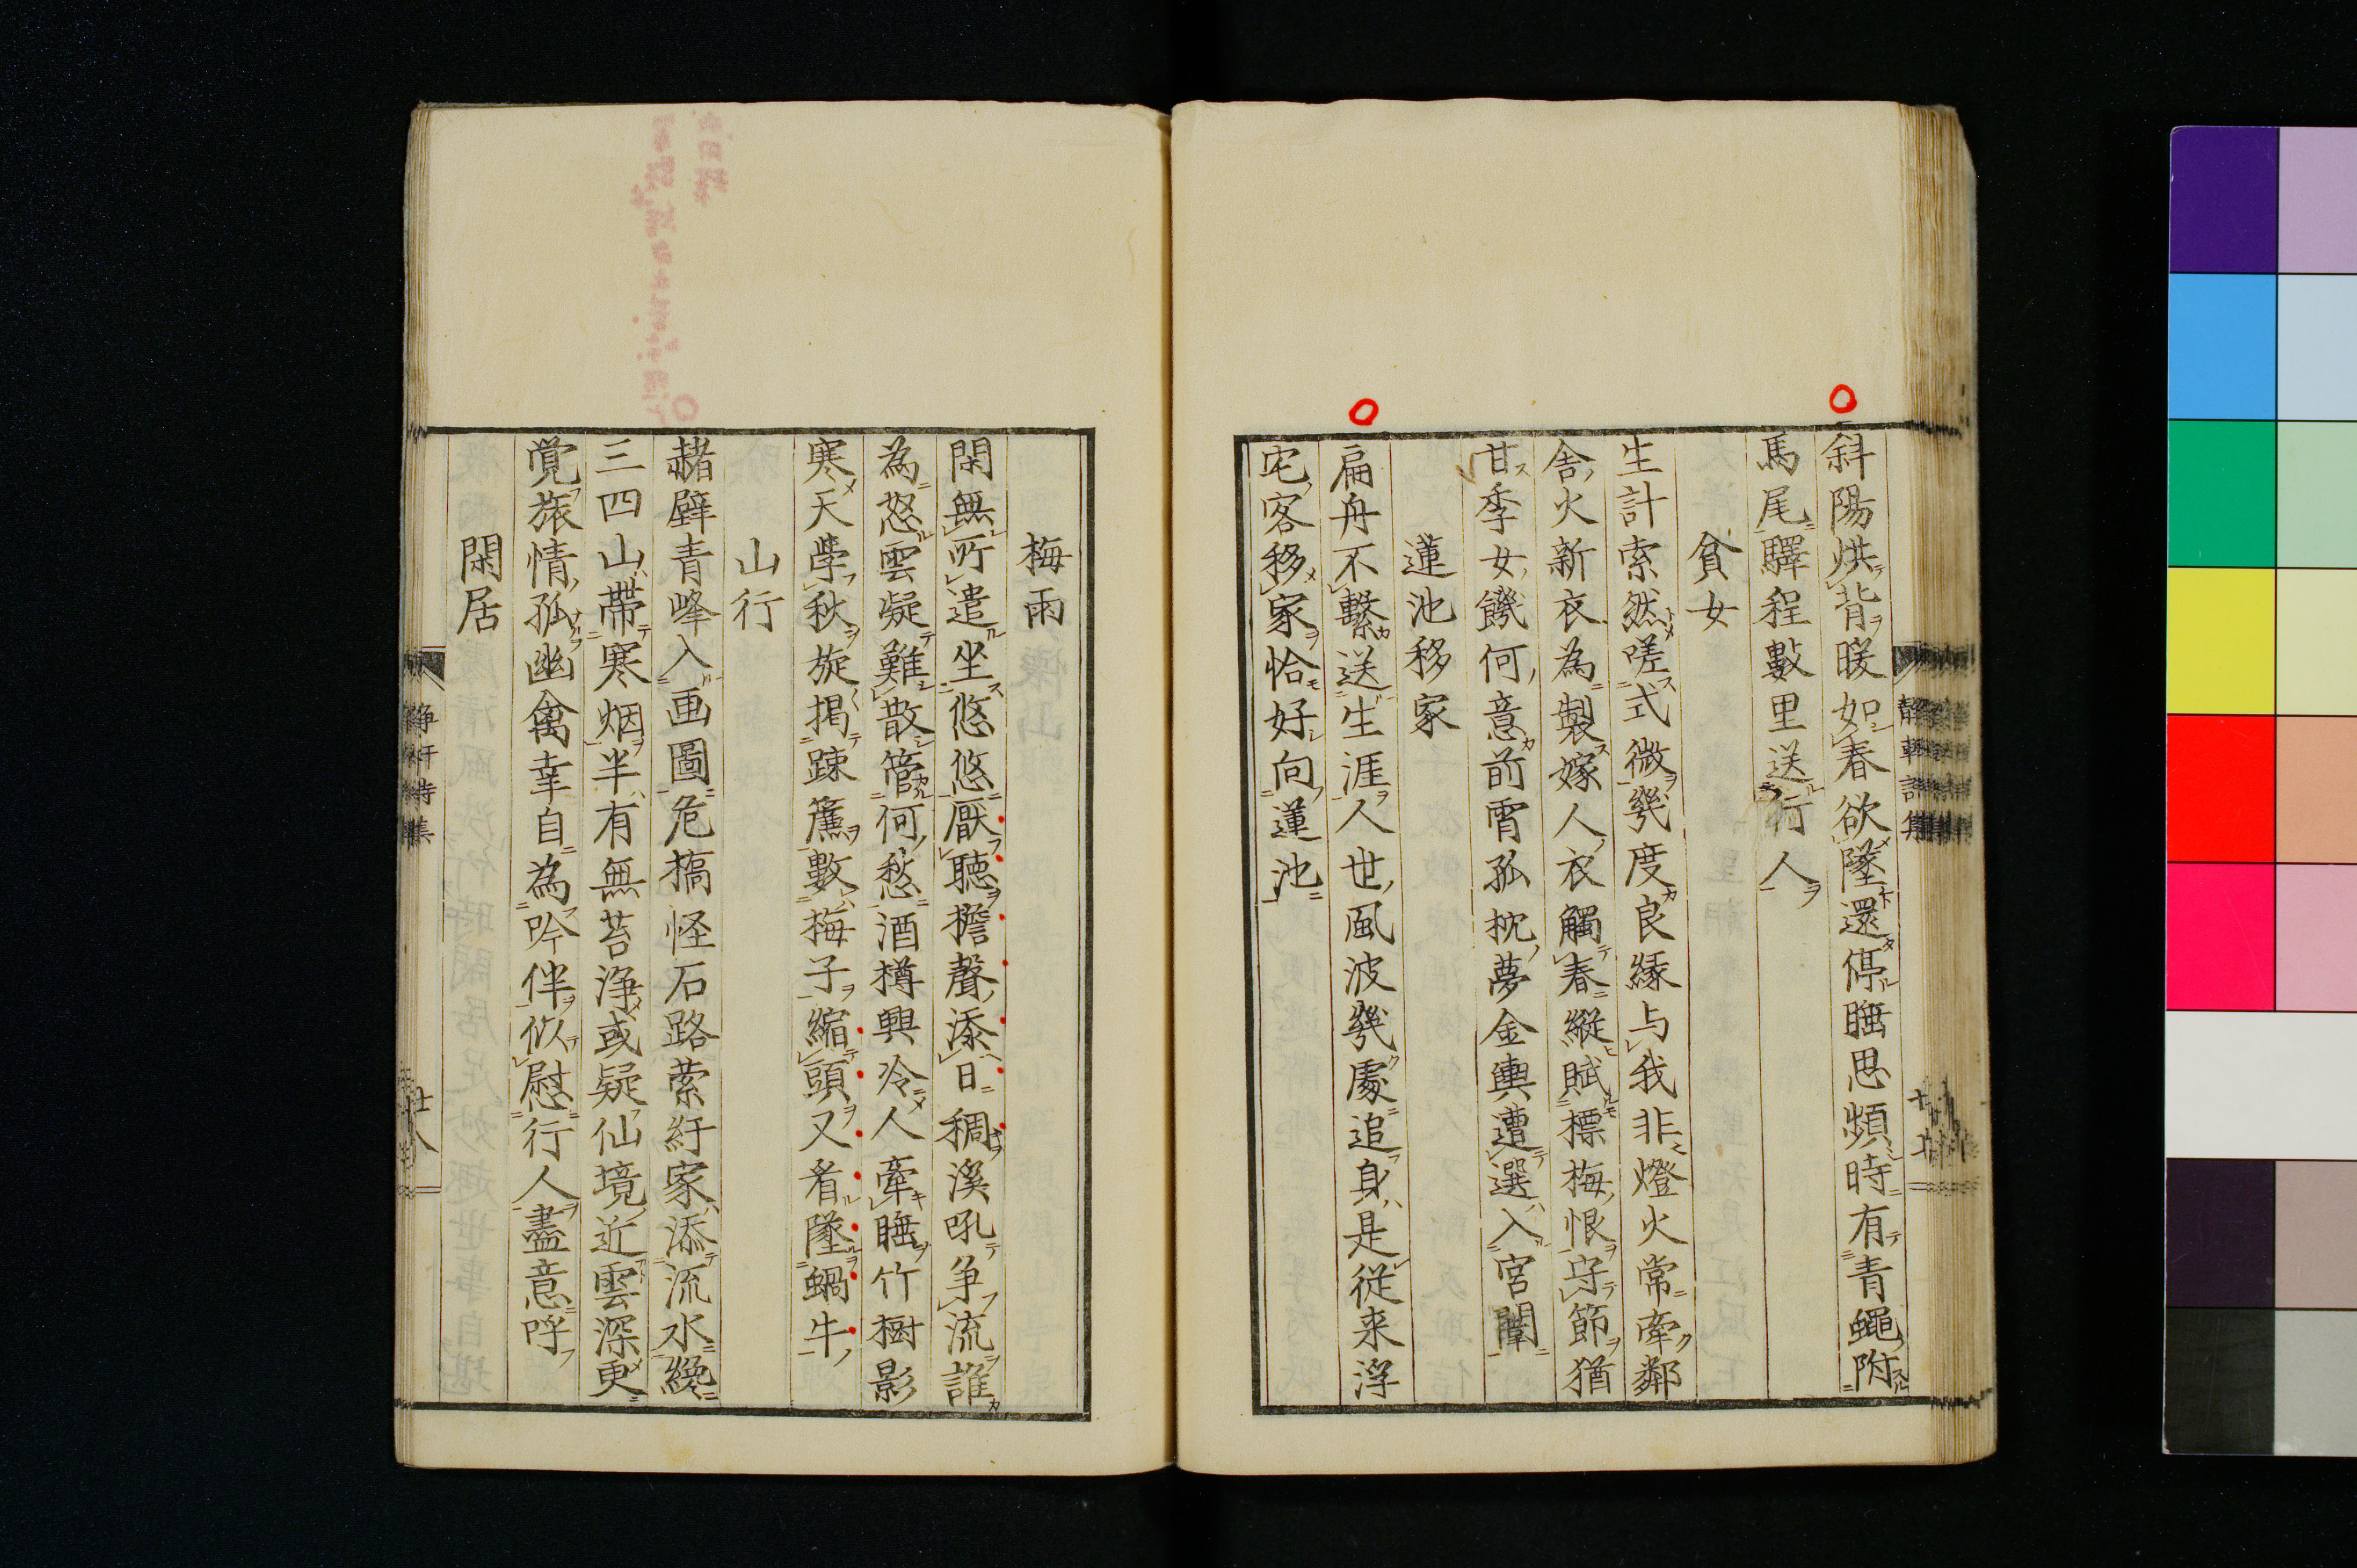 斜陽烘背暖如春欲墜還停睡思頻時有青蠅附
馬尾驛程數里送行人
貧女
生計索然嗟式微幾度良緣与我非燈火常牽鄰
舎火新衣為製嫁人衣觸春縱賦摽梅恨守節猶
甘季女饑何意前宵孤枕夢金輿遭選入宮闈
蓮池移家
扁舟不繫送生涯人世風波幾處追身是従来浮
宅客移家恰好向蓮池
梅雨
閑無所遣坐悠悠厭聴擔聲添日稠溪吼争流誰
為怒雲疑難散管何愁酒樽興冷人牽睡竹樹影
寒天學秋旋掲踈簾數梅子縮頭又看墜蝸牛
山行
赭壁青峰入画圖危槁怪石路縈紆家添流水纔
三四山帶寒烟半有無苔浄或疑仙境近雲深更
覚旅情孤幽禽幸自為吟伴似慰行人盡意呼
閑居